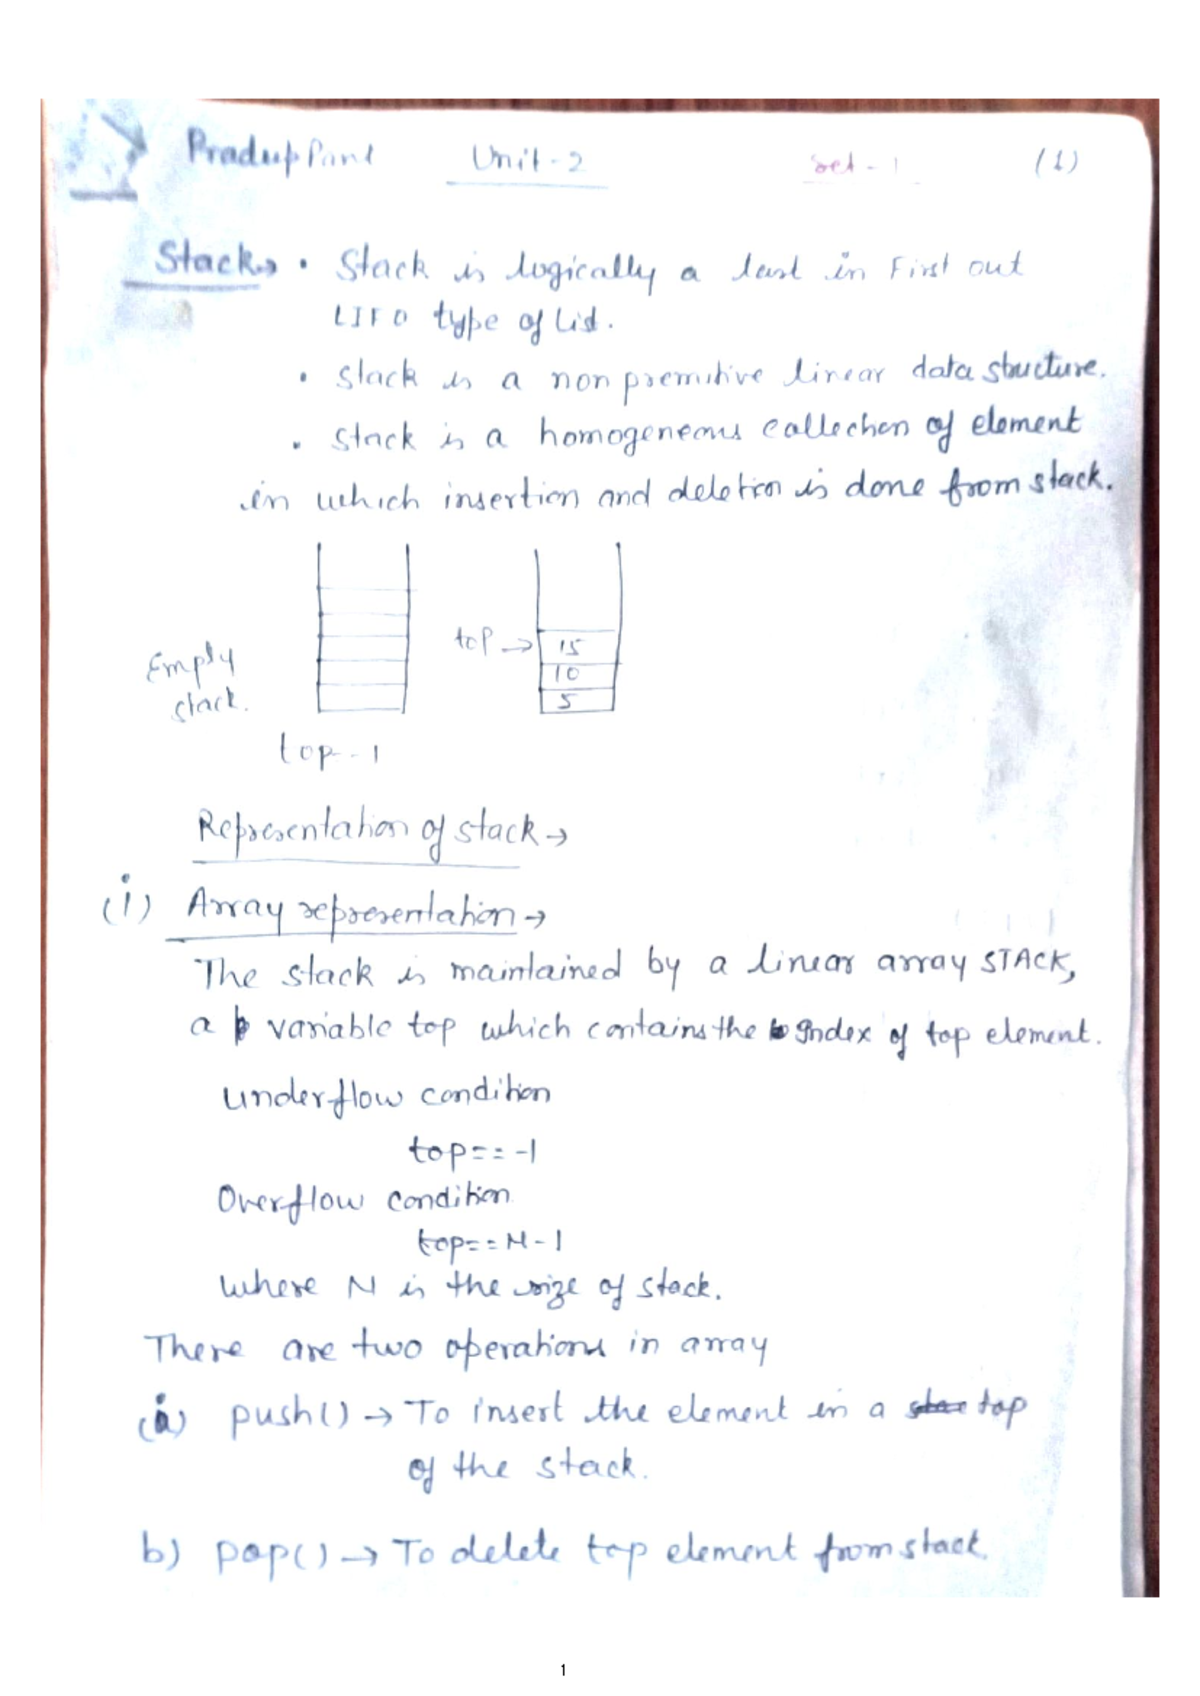 Pradup Pant Unit-2 Set-1 (1)
Stack → • Stack is logically a last in First out
LIFO type of list.
• Stack is a non premitive linear data structure.
• Stack is a homogeneous collection of element
in which insertion and deletion is done from stack.
top → 15
10
5
Empty
stack.
top -1
Representation of stack →
(i) Array representation →
The stack is maintained by a linear array STACK,
a variable top which contains the Index of top element.
Underflow condition
top == -1
Overflow condition
top == N-1
where N is the size of stack.
There are two operations in array
(a) push() → To insert the element in a top
of the stack.
b) pop() → To delete top element from stack.
1